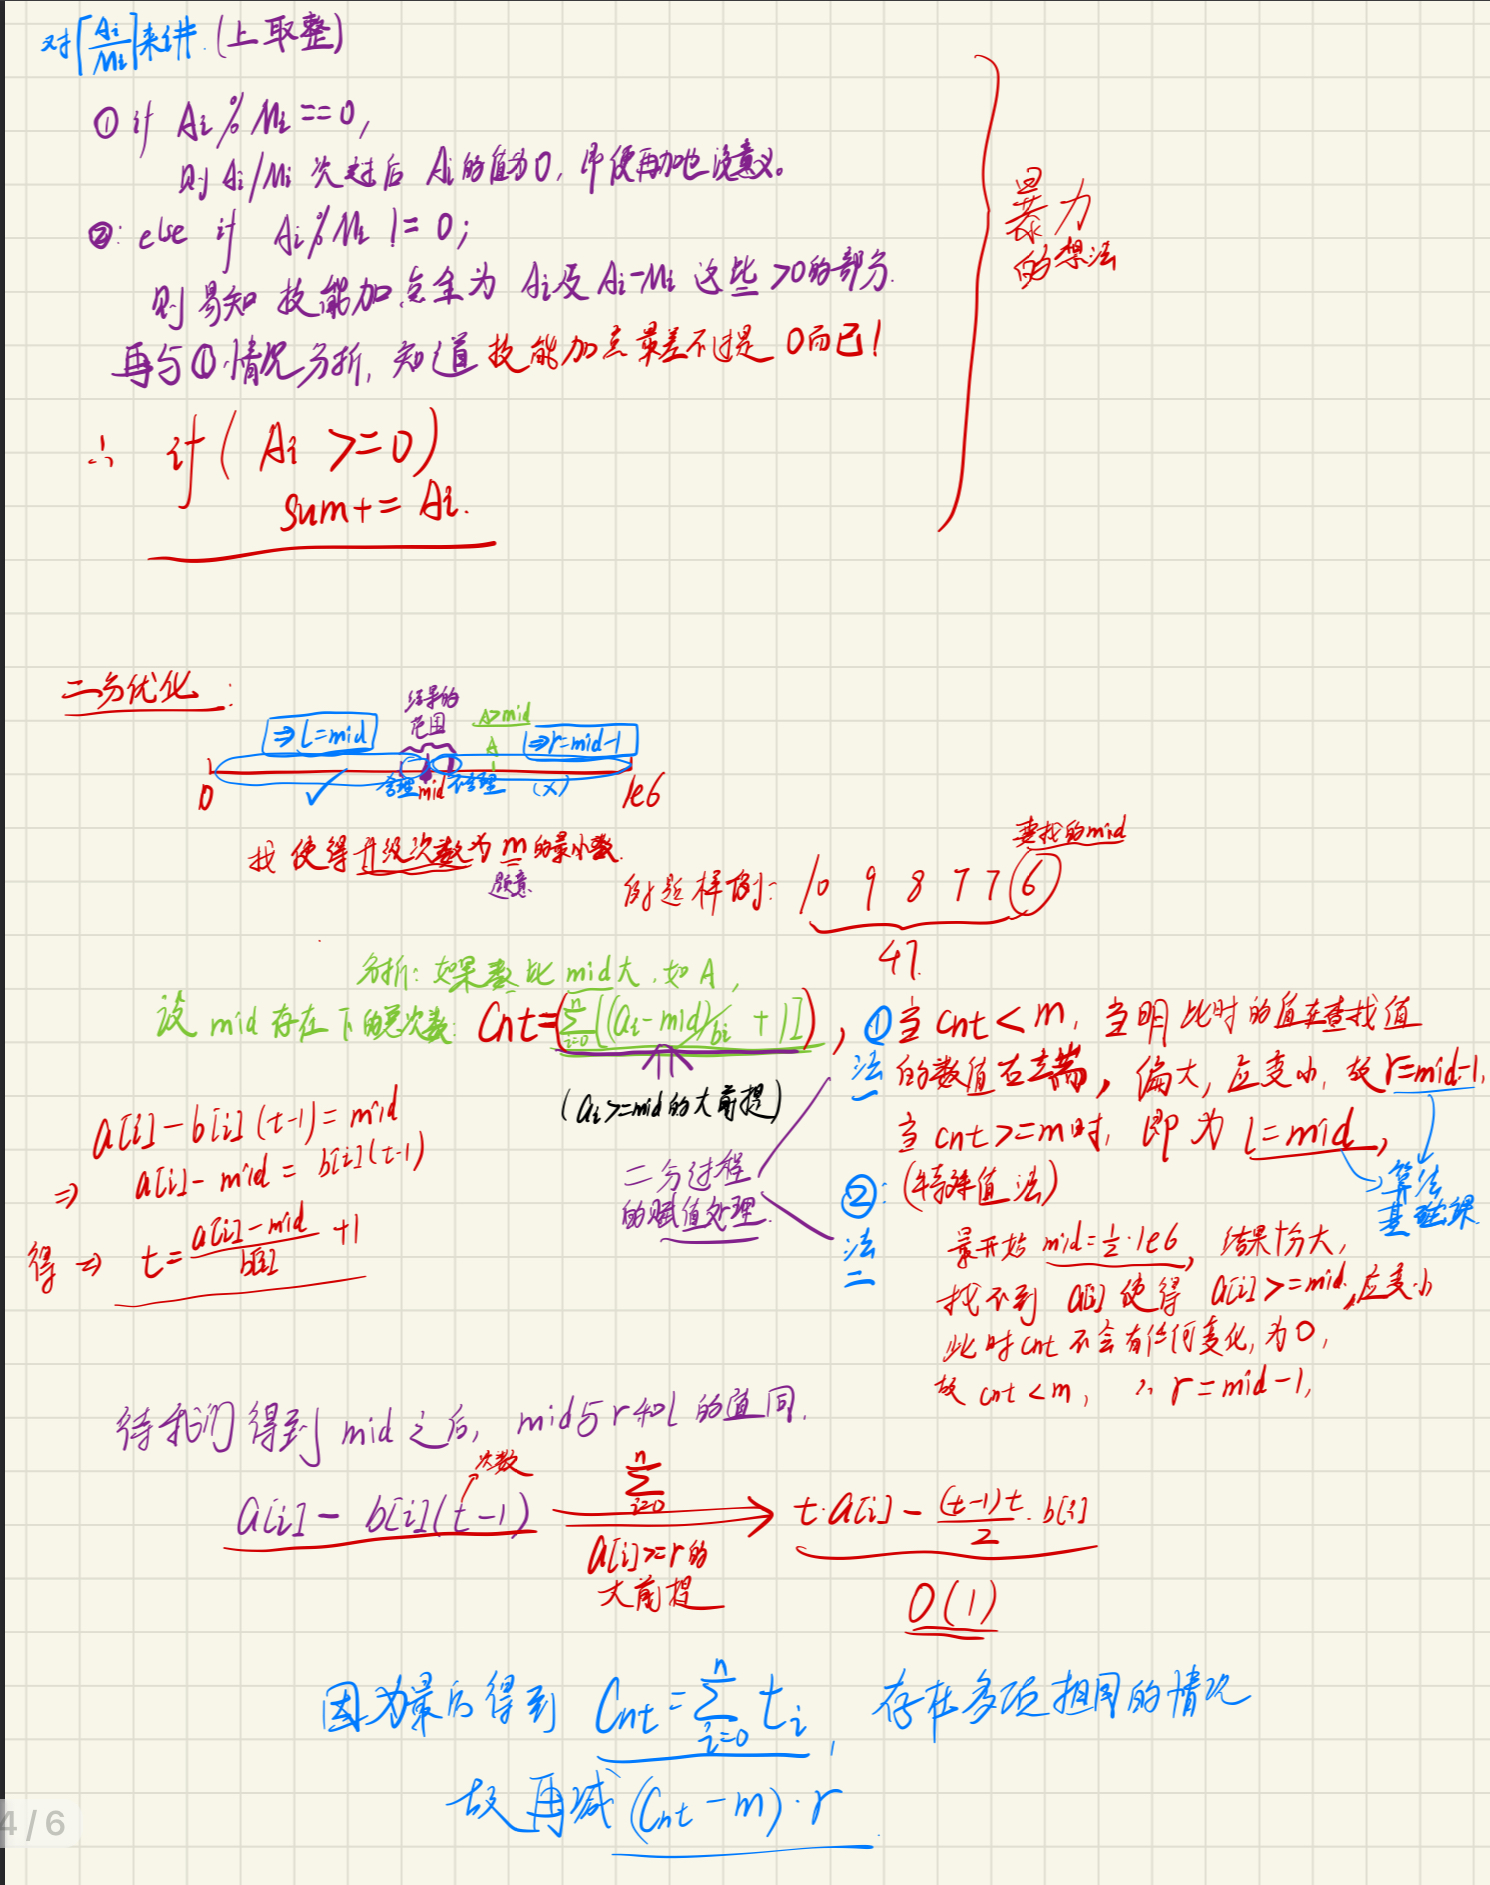 对⌈Ai/Mi⌉来讲.(上取整)
① if Ai % Mi == 0,
则 Ai/Mi 次过后 Ai的值为0, 即使再加也没意义。
②: else if Ai % Mi != 0;
则易知 技能加点全为 Ai及Ai-Mi 这些 >0的部分.
再与①情况分析, 知道 技能加点最差不过是 0而已!
∴ if ( Ai >= 0)
sum += Ai.
暴力
的想法
二分优化:
结果的
范围
A>mid
⇒ l=mid
A
⇒ r=mid-1
0 ✓ 合理 mid 不合理 (×) 1e6
找 使得升级次数为 m 的最小数.
题意
要找的mid
例题样例: 10 9 8 7 7 6
47.
分析: 如果数比mid大, 如A,
设 mid存在下的总次数: Cnt=(∑ⁿᵢ₌₀[(ai-mid)/bi + 1]),
(ai>=mid的大前提)
①当cnt<m, 当明此时的值在查找值
法一
的数值右端, 偏大, 应变小, 故r=mid-1,
当cnt>=m时, 即为 l=mid,
算法
基础课
a[i]-b[i](t-1)=mid
⇒ a[i]-mid = b[i](t-1)
得 ⇒ t = (a[i]-mid)/b[i] +1
二分过程
的赋值处理.
②: (特殊值法)
法二
最开始 mid=½·1e6, 结果十分大,
找不到 a[i] 使得 a[i]>=mid, 应变小
此时cnt不会有任何变化, 为0,
故 cnt<m, ∴ r=mid-1,
待我们得到 mid 之后, mid与r和l 的值同.
次数
a[i] - b[i](t-1) ∑ⁿᵢ₌₀ → t·a[i] - (t-1)t/2 · b[i]
a[i]>=r的
大前提
O(1)
因为最后得到 Cnt=∑ⁿᵢ₌₀ tᵢ, 存在多项相同的情况
故再减 (Cnt-m)·r
4/6